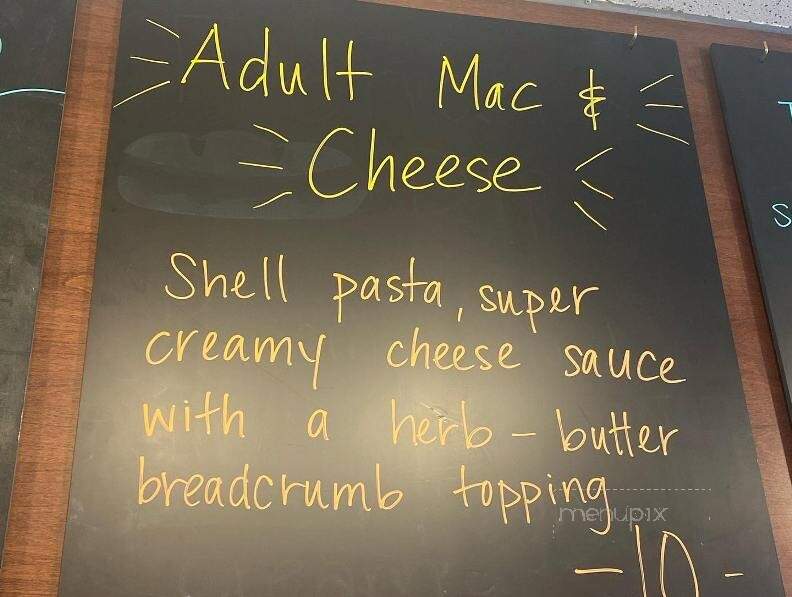 Adult Mac &
Cheese
Shell pasta, super
creamy cheese sauce
with a herb-butter
breadcrumb topping
menupix
-10-